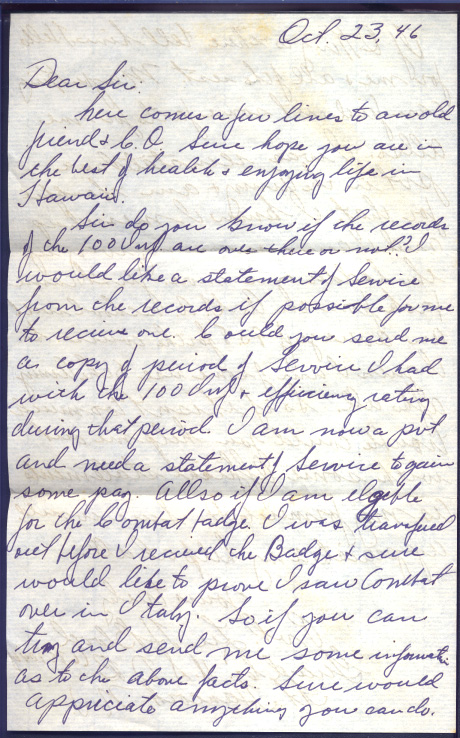 Oct. 23, 46
Dear Sir:
here comes a few lines to an old
friend & C.O. Sure hope you are in
the best of health & enjoying life in
Hawaii.
Sir do you know if the records
of the 100 Inf are over there or not? I
would like a statement of Service
from the records if possible for me
to receive one. Could you send me
as copy of period of Service I had
with the 100 Inf & efficiency rating
during that period. I am now a pvt
and need a statement of Service to gain
some pay. Allso if I am elgeble
for the Combat badge. I was transfured
out before I received the Badge & sure
would like to prove I saw Combat
over in Italy. So if you can
try and send me some information
as to the above facts. Sure would
appriciate anything you can do.